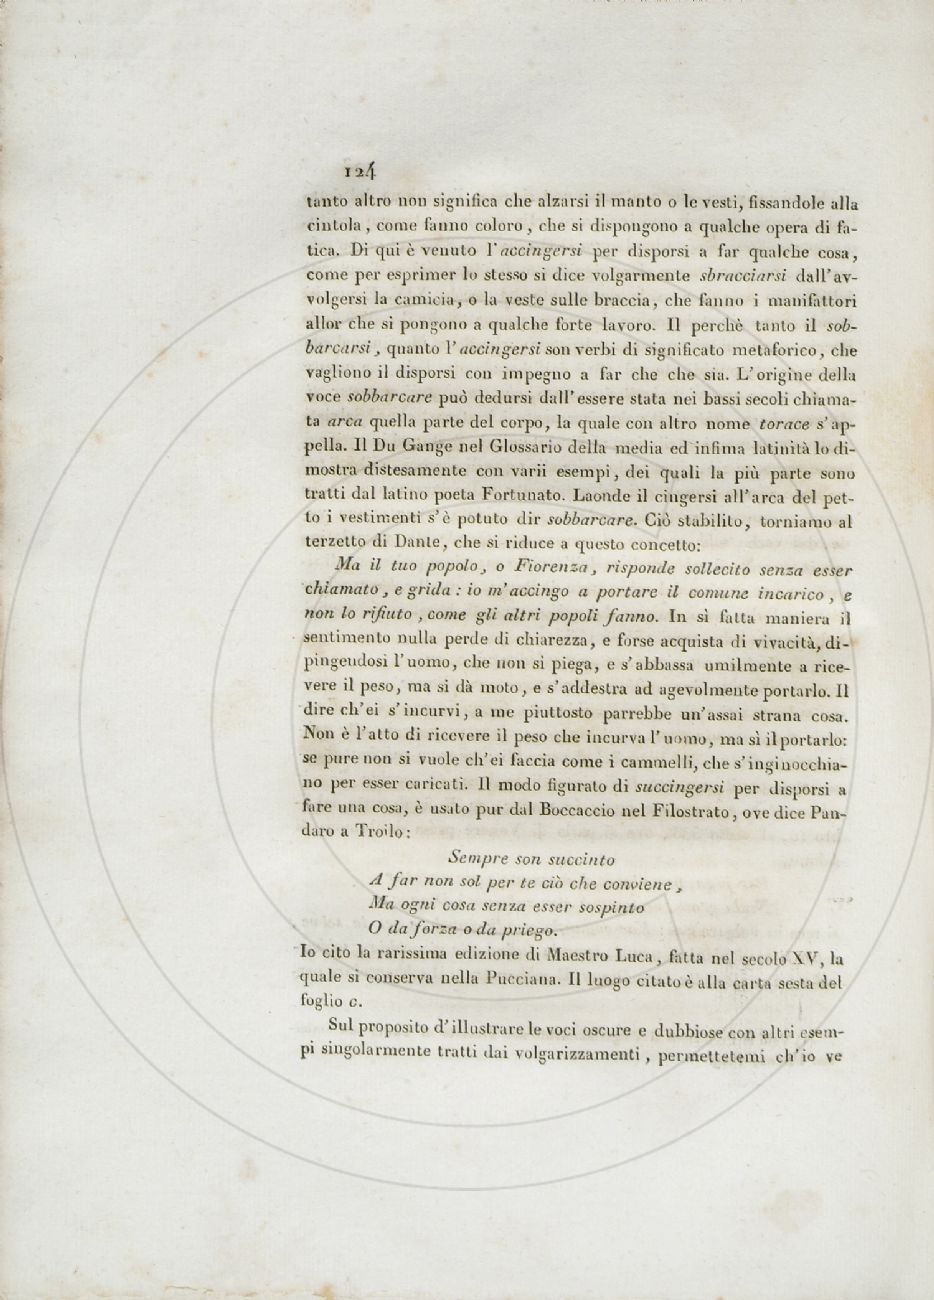 124
tanto altro non significa che alzarsi il manto o le vesti, fissandole alla
cintola, come fanno coloro, che si dispongono a qualche opera di fa-
tica. Di qui è venuto l'accingersi per disporsi a far qualche cosa,
come per esprimer lo stesso si dice volgarmente sbracciarsi dall'av-
volgersi la camicia, o la veste sulle braccia, che fanno i manifattori
allor che si pongono a qualche forte lavoro. Il perchè tanto il sob-
barcarsi, quanto l'accingersi son verbi di significato metaforico, che
vagliono il disporsi con impegno a far che che sia. L'origine della
voce sobbarcare può dedursi dall'essere stata nei bassi secoli chiama-
ta arca quella parte del corpo, la quale con altro nome torace s'ap-
pella. Il Du Gange nel Glossario della media ed infima latinità lo di-
mostra distesamente con varii esempi, dei quali la più parte sono
tratti dal latino poeta Fortunato. Laonde il cingersi all'arca del pet-
to i vestimenti s'è potuto dir sobbarcare. Ciò stabilito, torniamo al
terzetto di Dante, che si riduce a questo concetto:
Ma il tuo popolo, o Fiorenza, risponde sollecito senza esser
chiamato, e grida: io m'accingo a portare il comune incarico, e
non lo rifiuto, come gli altri popoli fanno. In sì fatta maniera il
sentimento nulla perde di chiarezza, e forse acquista di vivacità, di-
pingendosi l'uomo, che non si piega, e s'abbassa umilmente a rice-
vere il peso, ma si dà moto, e s'addestra ad agevolmente portarlo. Il
dire ch'ei s'incurvi, a me piuttosto parrebbe un'assai strana cosa.
Non è l'atto di ricevere il peso che incurva l'uomo, ma sì il portarlo:
se pure non si vuole ch'ei faccia come i cammelli, che s'inginocchia-
no per esser caricati. Il modo figurato di succingersi per disporsi a
fare una cosa, è usato pur dal Boccaccio nel Filostrato, ove dice Pan-
daro a Troilo:
Sempre son succinto
A far non sol per te ciò che conviene,
Ma ogni cosa senza esser sospinto
O da forza o da priego.
Io cito la rarissima edizione di Maestro Luca, fatta nel secolo XV, la
quale si conserva nella Pucciana. Il luogo citato è alla carta sesta del
foglio c.
Sul proposito d'illustrare le voci oscure e dubbiose con altri esem-
pi singolarmente tratti dai volgarizzamenti, permettetemi ch'io ve